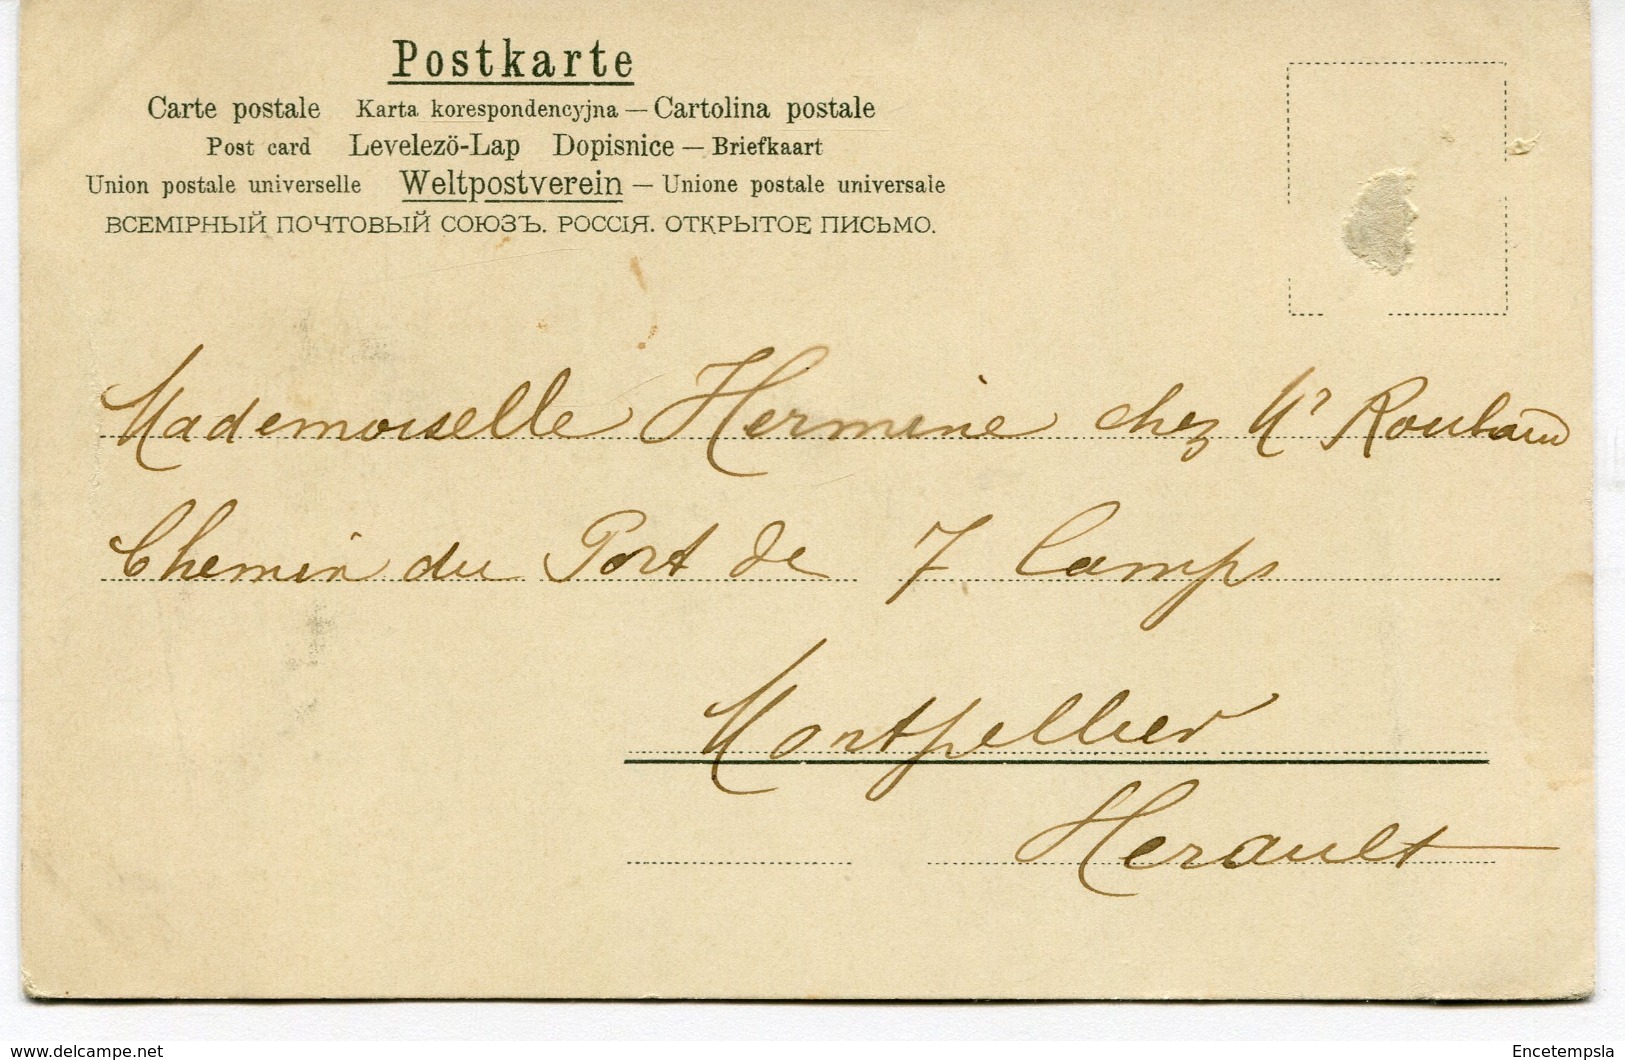 Postkarte
Carte postale Karta korespondencyjna — Cartolina postale
Post card Levelezö-Lap Dopisnice — Briefkaart
Union postale universelle Weltpostverein — Unione postale universale
ВСЕМІРНЫЙ ПОЧТОВЫЙ СОЮЗЪ. РОССІЯ. ОТКРЫТОЕ ПИСЬМО.
Mademoiselle Hermine chez Mr Roubaud
Chemin du Port de 7 Camps
Montpellier
Herault
www.delcampe.net
Encetempsla